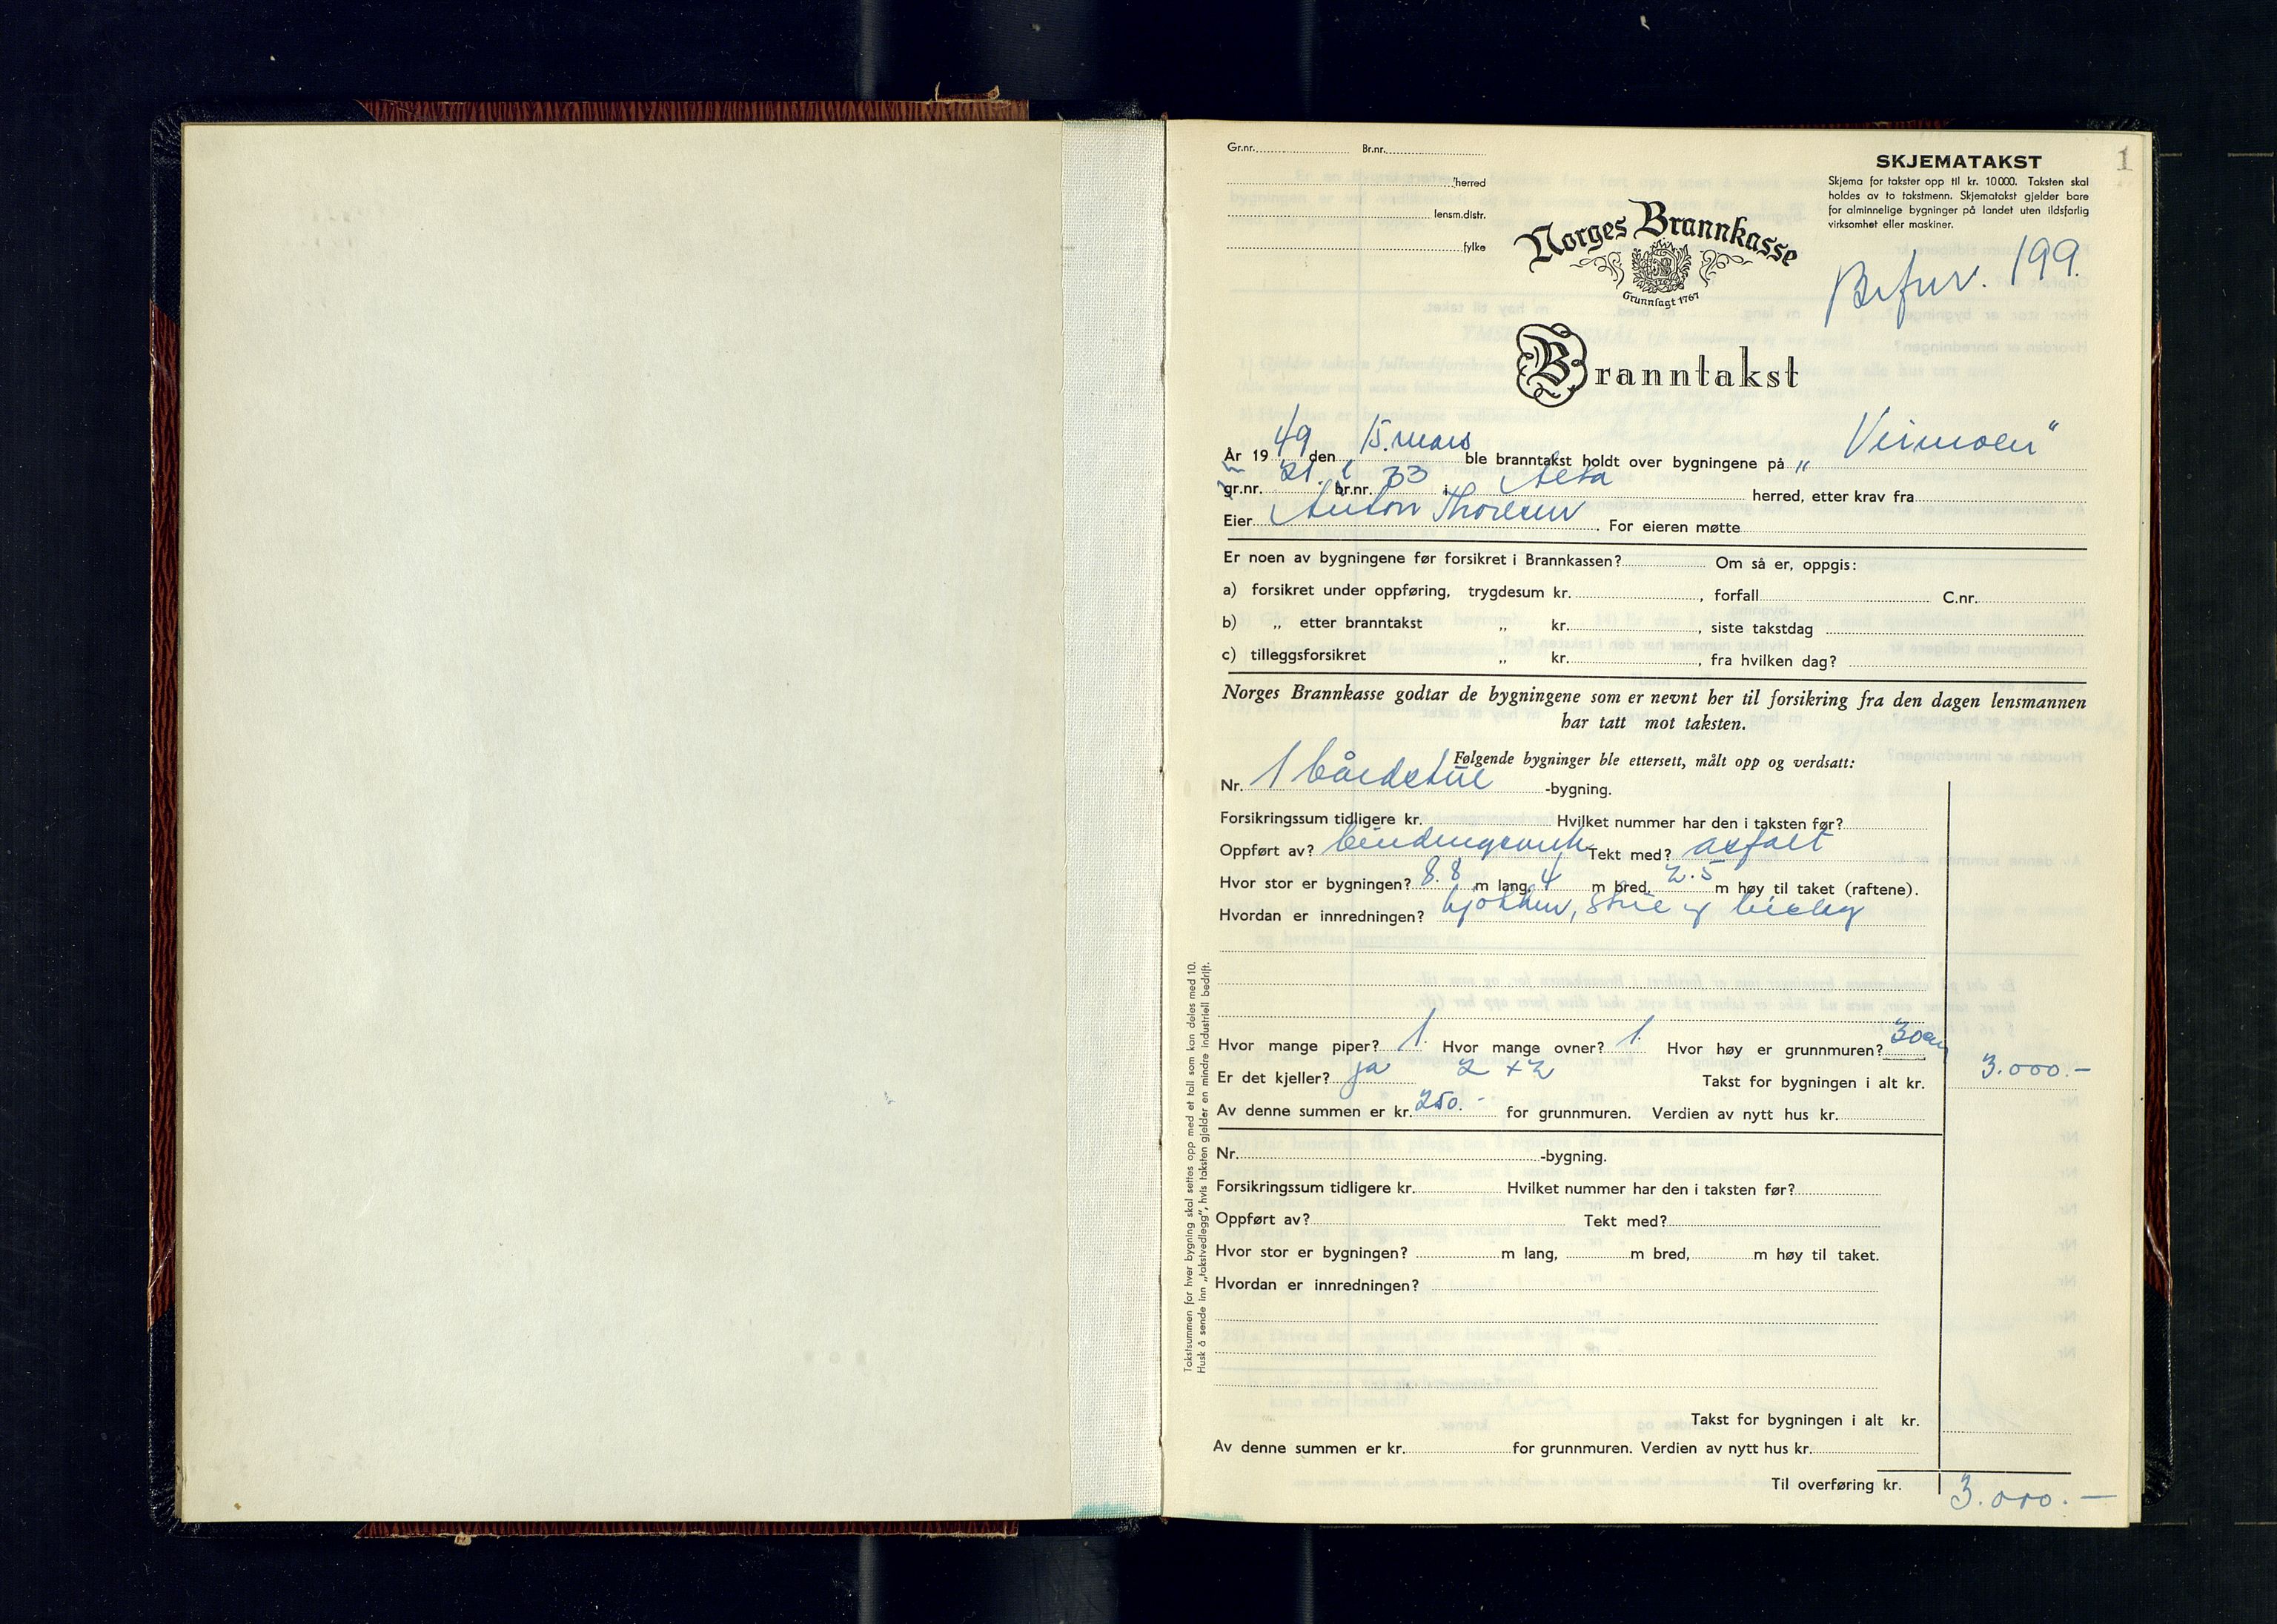 Gr.nr. Br.nr.
herred
lensm.distr.
fylke
SKJEMATAKST
1
Skjema for takster opp til kr. 10000. Taksten skal
holdes av to takstmenn. Skjematakst gjelder bare
for alminnelige bygninger på landet uten ildsfarlig
virksomhet eller maskiner.
Norges Brannkasse
Grunnlagt 1767
199.
Branntakst
År 1949 den 15. mars ble branntakst holdt over bygningene på „
gr.nr. 21 br.nr. 33 i Alta herred, etter krav fra
Eier Anton Thoresen. For eieren møtte
Er noen av bygningene før forsikret i Brannkassen? Om så er, oppgis:
a) forsikret under oppføring, trygdesum kr. , forfall C.nr.
b) „ etter branntakst „ kr. , siste takstdag
c) tilleggsforsikret „ kr. , fra hvilken dag?
Norges Brannkasse godtar de bygningene som er nevnt her til forsikring fra den dagen lensmannen
har tatt mot taksten.
Følgende bygninger ble ettersett, målt opp og verdsatt:
Nr. 1 -bygning.
Forsikringssum tidligere kr. Hvilket nummer har den i taksten før?
Oppført av? bindingsverk Tekt med? asfalt
Hvor stor er bygningen? 8.8 m lang, 4 m bred, 2.5 m høy til taket (raftene).
Hvordan er innredningen? kjøkken, stue og bislag
Hvor mange piper? 1. Hvor mange ovner? 1. Hvor høy er grunnmuren? 30 cm
Er det kjeller? ja 2 x 2 Takst for bygningen i alt kr. 3.000.-
Av denne summen er kr. 250.- for grunnmuren. Verdien av nytt hus kr.
Nr. -bygning.
Forsikringssum tidligere kr. Hvilket nummer har den i taksten før?
Oppført av? Tekt med?
Hvor stor er bygningen? m lang, m bred, m høy til taket.
Hvordan er innredningen?
Takst for bygningen i alt kr.
Av denne summen er kr. for grunnmuren. Verdien av nytt hus kr.
Til overføring kr. 3.000.-
Takstsummen for hver bygning skal settes opp med et tall som kan deles med 10.
Husk å sende inn „takstvedlegg", hvis taksten gjelder en mindre industriell bedrift.